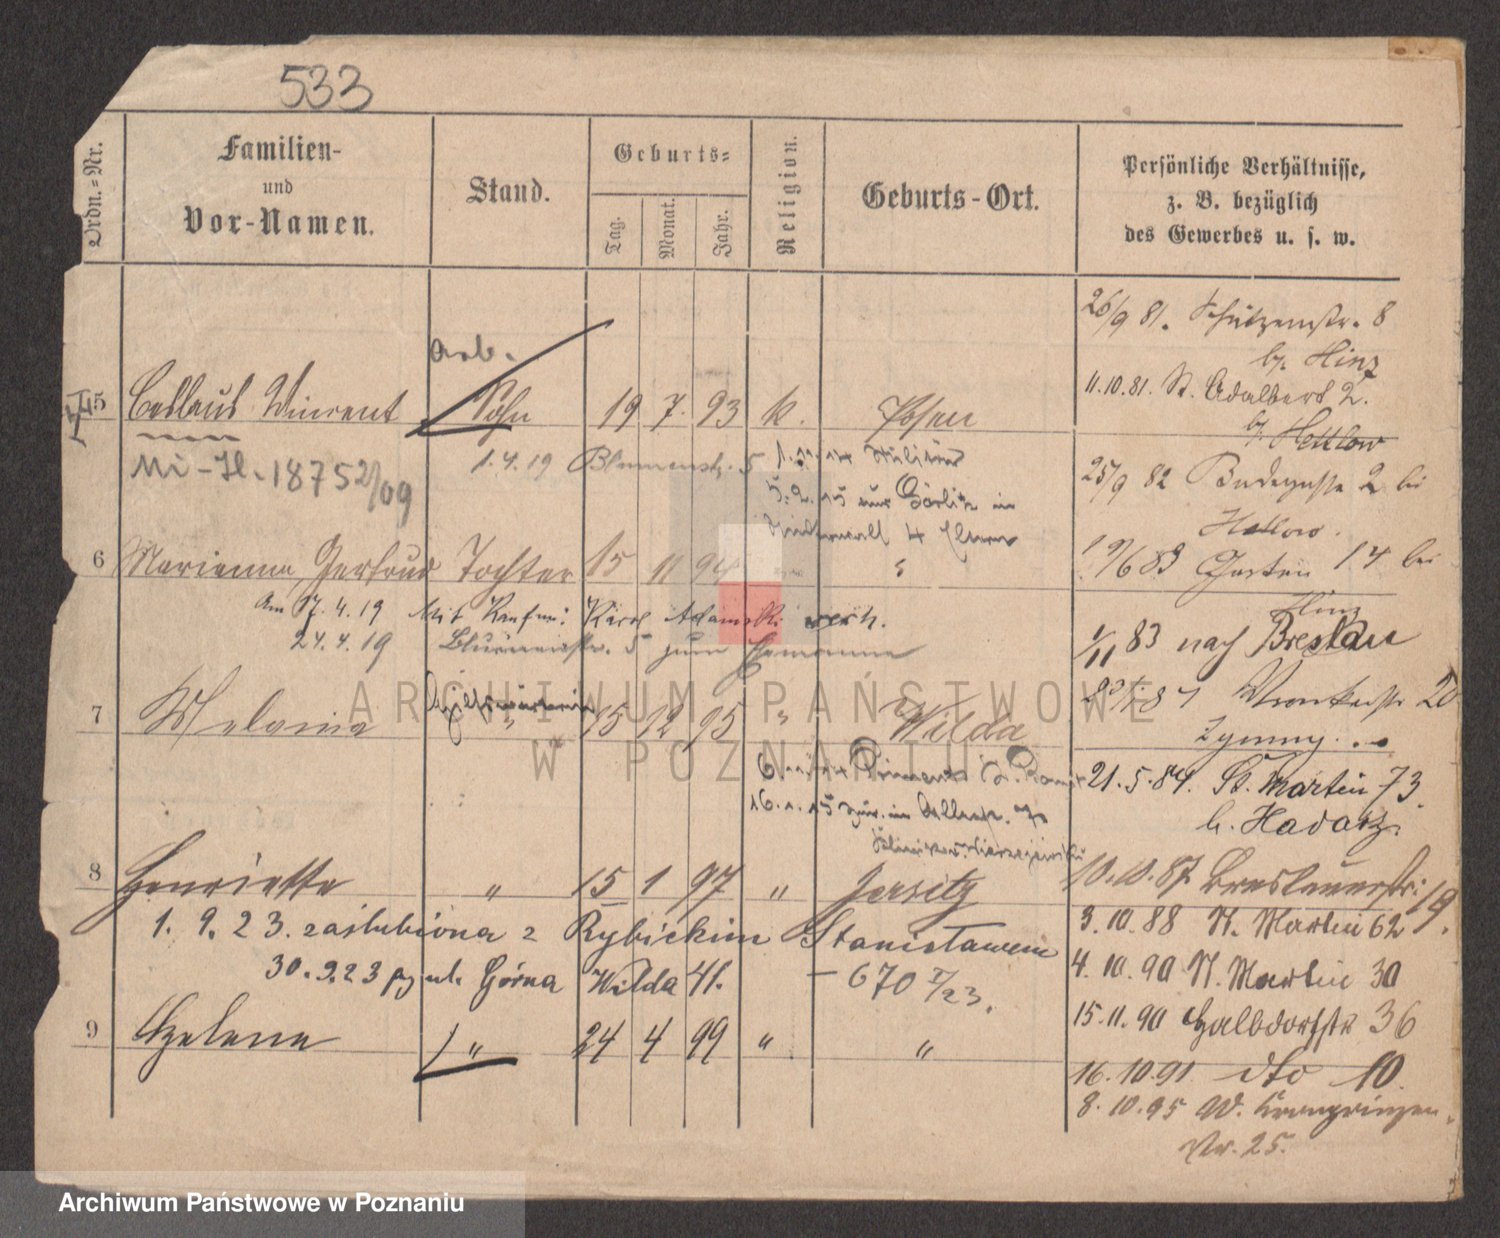 533
Ordn.-Nr.
Familien-
und
Vor-Namen.
Stand.
Geburts-
Tag.
Monat.
Jahr.
Religion.
Geburts-Ort.
Persönliche Verhältnisse,
z. B. bezüglich
des Gewerbes u. s. w.
26/9 81. Schützenstr. 8
b. Hinz
11.10.81. St. Adalbert 2.
b. Hettlow
25/9 82 2 bei
Hettlow.
19/6 83 Garten 14 bei
Hinz
1/11 83 nach Breslau
87 Wronkerstr 20
21.5.84. St. Martin 73.
b. Hadasz.
10.10.87. Breslauerstr. 19.
3.10.88 St. Martin 62
4.10.90 St. Martin 30
15.11.90 Halbdorfstr 36
16.10.91 dto 10.
8.10.95 W. Kronprinzen
Nr. 25.
Arb.
5 Ceslaus Vincent Sohn 19 7. 93 k. Posen
1.4.19 Blumenstr. 5
Mi-Il. 18752/09
5.2.15 aus Görlitz in
6 Marianna Gertrud Tochter 15 11 94 "
Am 17.4.19 Mit Kaufm: Karol Adamski verh.
24.4.19 Blumenstr. 5 zum Ehemanne
7 Melania " 15 12 95 " Wilda
8 Henriette " 15 1 97 " Jersitz
1.9.23. zaślubiona z Rybickim Stanisławem
30.9.23 ul. Górna Wilda 41. - 670 I/23.
9 Helene " 24 4 99 " "
ARCHIWUM PAŃSTWOWE
W POZNANIU
Archiwum Państwowe w Poznaniu